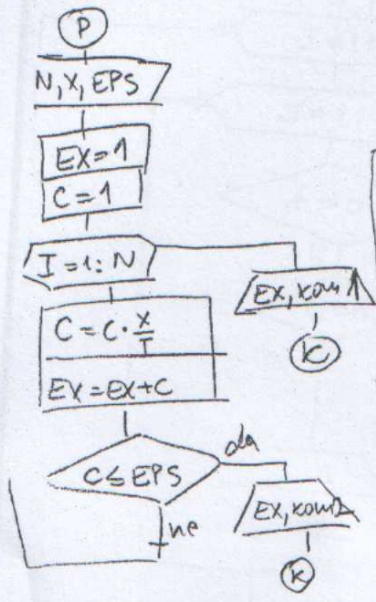 P
N, X, EPS
EX=1
C=1
I=1:N
EX, kom 1
K
C=C·X/I
EX=EX+C
C≤EPS
da
ne
EX, kom 2
K